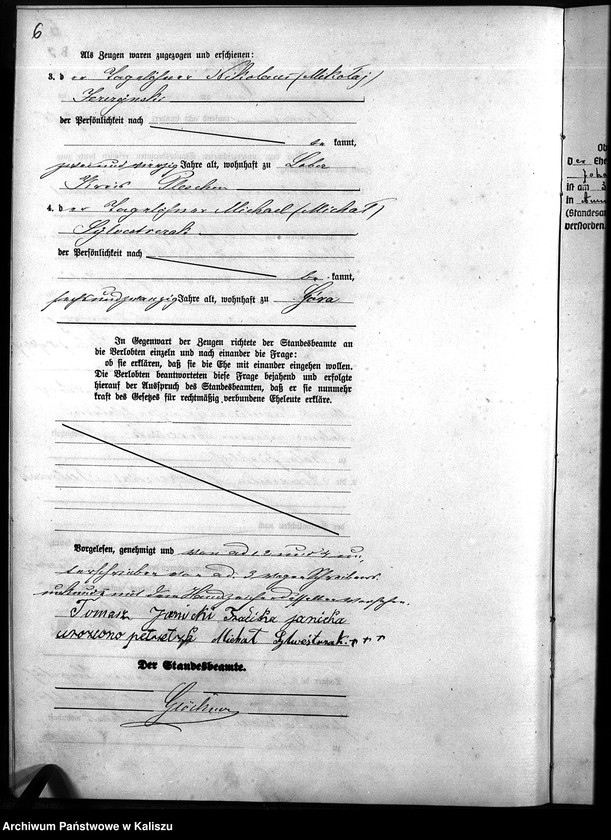 6
Als Zeugen waren zugezogen und erschienen:
3. der Tagelöhner Nikolaus (Mikołaj)
der Persönlichkeit nach
be kannt,
zwei und vierzig Jahre alt, wohnhaft zu
Kreis Pleschen
4. der Tagelöhner Michael (Michał)
Sylvestrzak
der Persönlichkeit nach
be kannt,
sechsundzwanzig Jahre alt, wohnhaft zu Góra
In Gegenwart der Zeugen richtete der Standesbeamte an
die Verlobten einzeln und nach einander die Frage:
ob sie erklären, daß sie die Ehe mit einander eingehen wollen.
Die Verlobten beantworteten diese Frage bejahend und erfolgte
hierauf der Ausspruch des Standesbeamten, daß er sie nunmehr
kraft des Gesetzes für rechtmäßig verbundene Eheleute erkläre.
Vorgelesen, genehmigt und von ad 1, 2 und 4 un-
terschrieben von ad. 3 wegen Schreibens-
unkunde mit dem Handzeichen desselben versehen.
Tomasz Janicki Franciska janicka
urozono Michał Sylwestrzak +++
Der Standesbeamte.
Ob
der Ehe
ist am
in
(Standesam
verstorben.
Archiwum Państwowe w Kaliszu